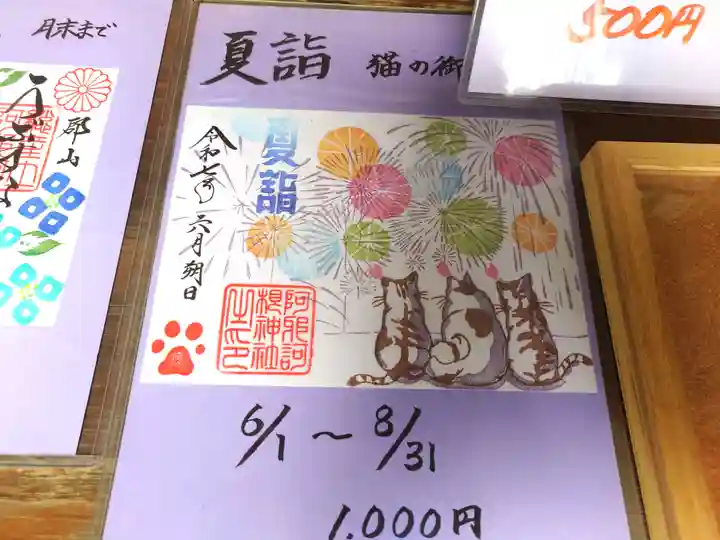 月末まで
郡山
500円
夏詣 猫の御
夏詣
令和七年
六月朔日
阿邪訶
根神社
之印
6/1～8/31
1,000円